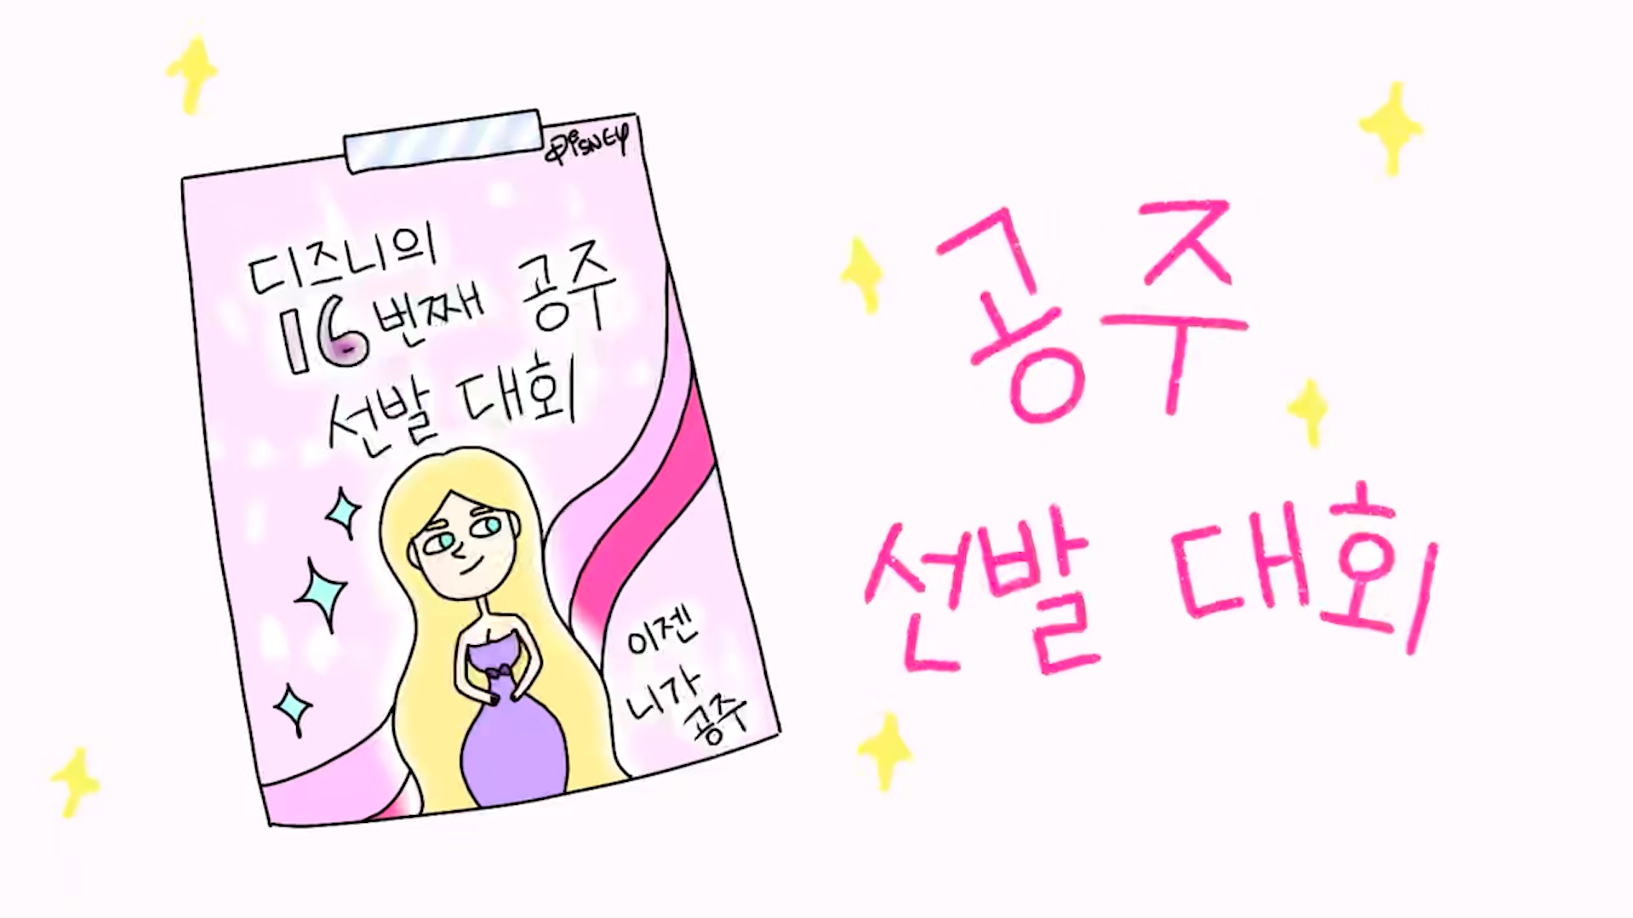 Disney
디즈니의
16번째 공주
선발 대회
이젠
니가
공주
공주
선발 대회